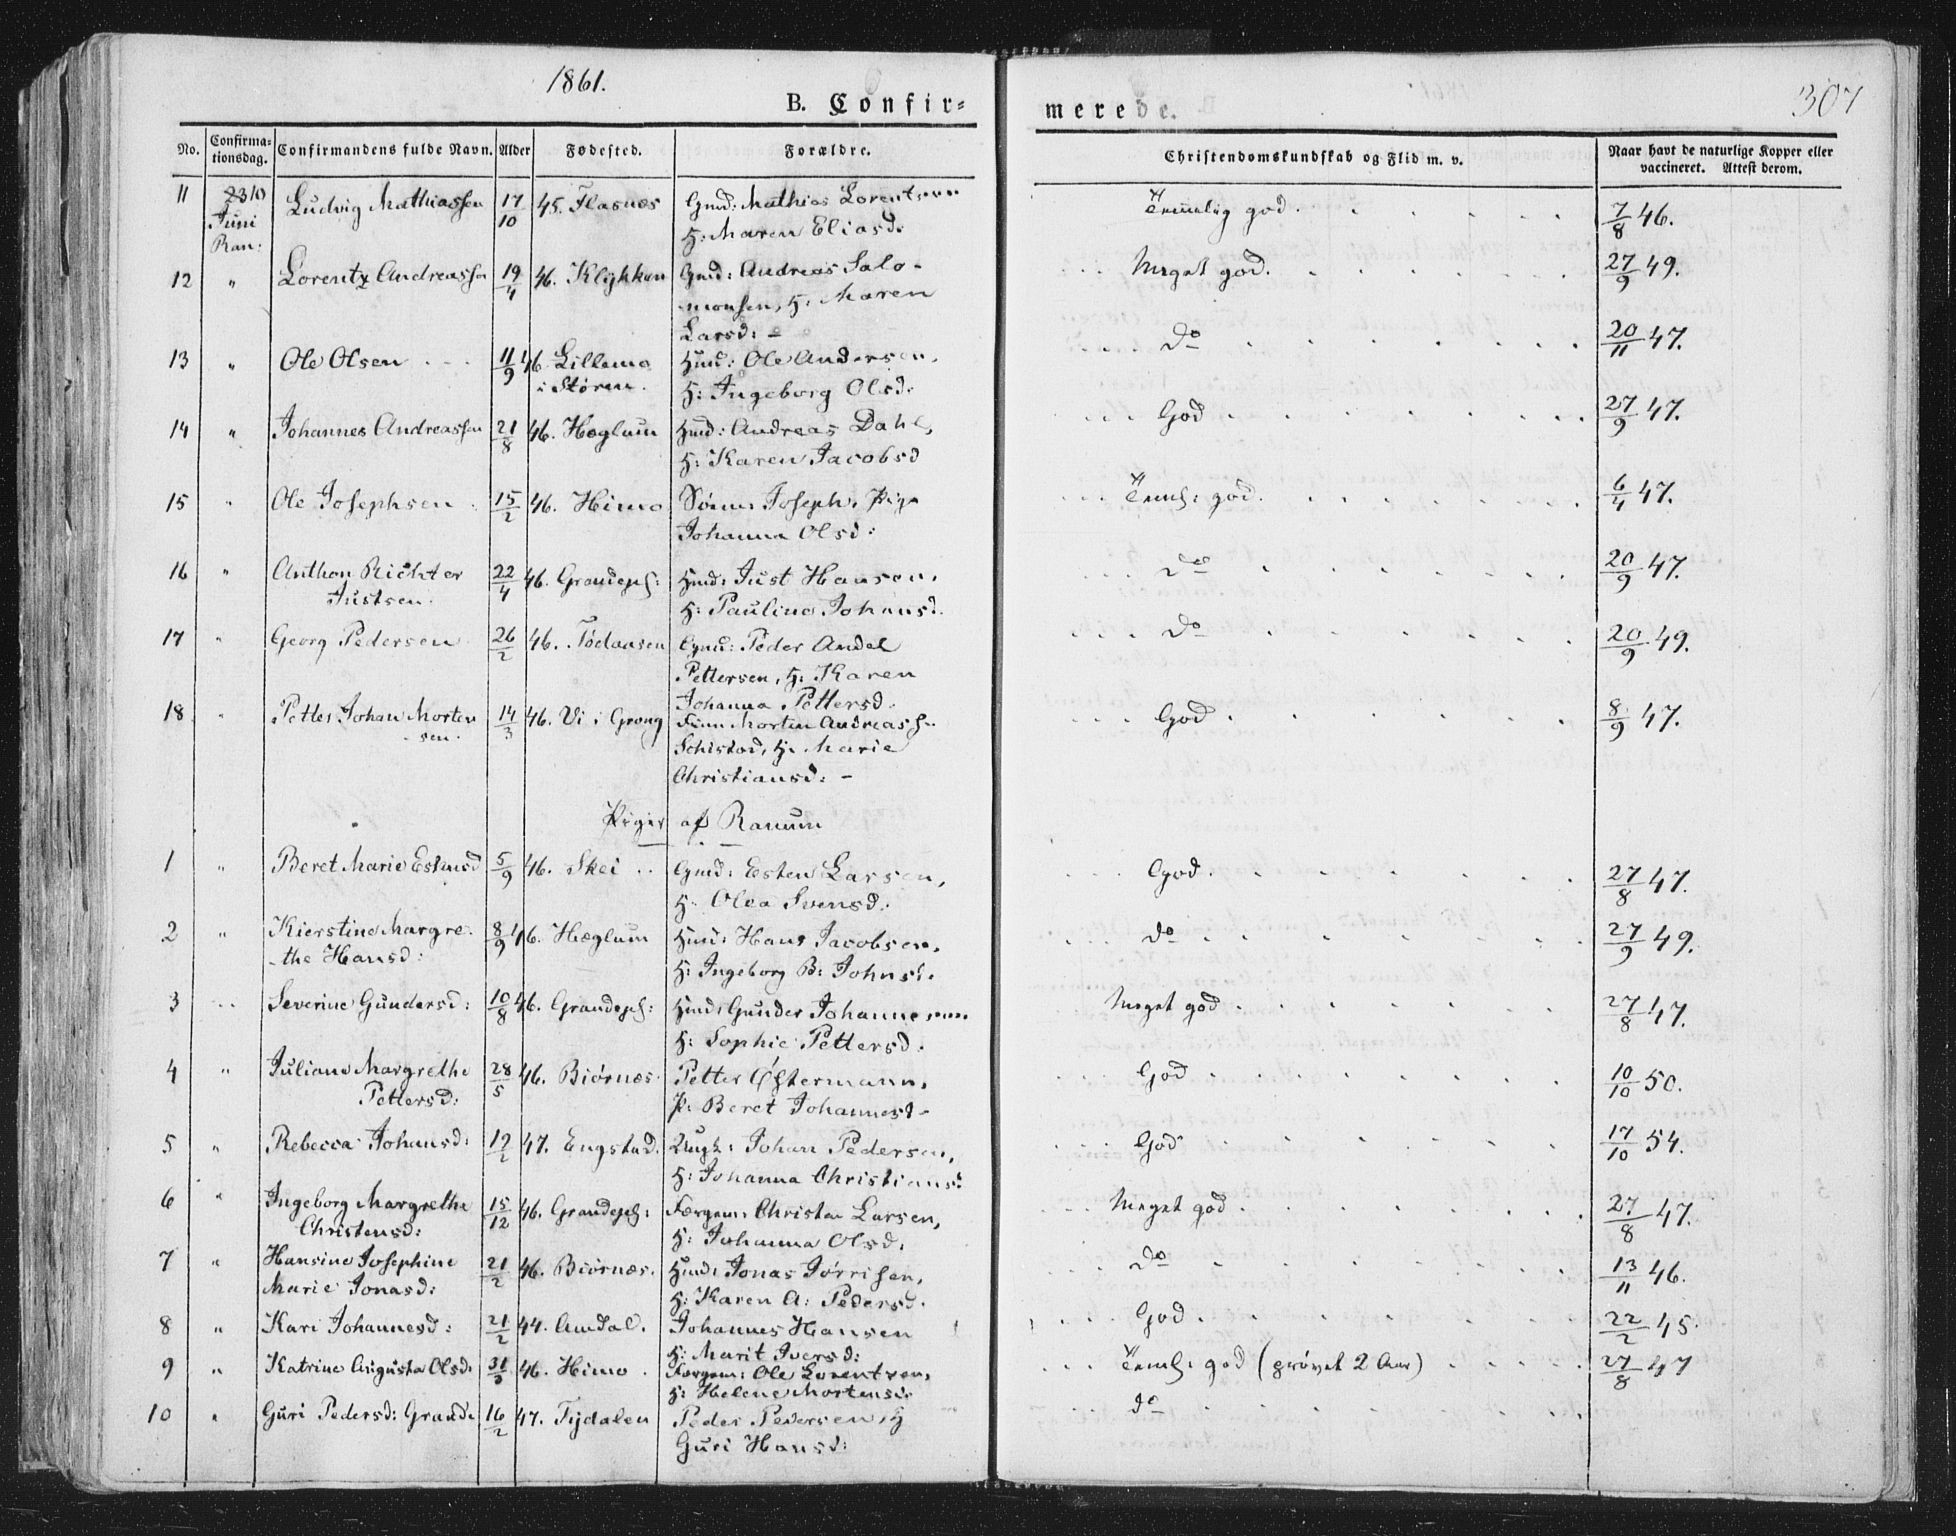 1861.
B. Confir-
merede.
307
No.
Confirma-
tionsdag.
Confirmandens fulde Navn.
Alder
Fødested.
Forældre.
Christendomskundskab og Flid m. v.
Naar havt de naturlige Kopper eller
vaccineret. Attest derom.
11 23 Ludvig Mathiassen 17/10 45. Flasnes Gmd: Mathias Lorentsen Temmelig god. 7/8 46.
Juni H: Maren Eliasd:
Ran:
12 " Lorentz Andreassen 19/4 46. Klykken Gmd: Andreas Salo- Meget god. 27/9 49.
monsen, H: Maren
Larsd: -
13 " Ole Olsen 11/9 46. Lillemo Hmd: Ole Andersen, do 20/11 47.
i Støren. H: Ingeborg Olsd:
14 " Johannes Andreassen 21/8 46. Hæglum Hmd: Andreas Dahl, God 27/9 47.
H: Karen Jacobsd
15 " Ole Josephsen 15/2 46. Himo Joseph, Pige Teml: god. 6/4 47.
Johanna Olsd:
16 " Anthon Richter 22/4 46. Grandepl: Hmd: Just Hansen, do 20/9 47.
Justsen. H: Pauline Johansd.
17 " Georg Pedersen 26/2 46. Gmd: Peder Andel do 20/9 49.
Pettersen, H: Karen
Johanna Pettersd.
18 " Petter Johan Morten 14/3 46. Vi i Grong Morten Andreass. God 8/9 47.
sen. H: Marie
Christiansd: -
Piger af Ranum
1 " Beret Marie Estensd 5/9 46. Skei Gmd: Esten Larsen, God. 27/8 47.
H: Olea Svensd:
2 " Kierstine Margre- 8/9 46. Hæglum Hmd: Hans Jacobsen, do 27/9 49.
the Hansd: H: Ingeborg B: Johnsd.
3 " Severine Gundersd: 10/8 46. Grandepl: Hmd: Gunder Johannesen Meget god 27/8 47.
H: Sophie Pettersd.
4 " Juliane Margrethe 28/5 46. Biørnes Petter Østermann, God 10/10 50.
Pettersd: P: Beret Johannesd-
5 " Rebecca Johansd: 12/2 47. Engstad. Johan Pedersen, God 17/10 54.
H: Johanna Christiansd:
6 " Ingeborg Margrethe 15/12 46. Grandepl: Færgem: Christen Larsen, Meget god 27/8 47.
Christensd: H: Johanna Olsd.
7 " Hansine Josephine 21/2 46. Biørnes. Hmd: Jonas Jørrisen, do 13/11 46.
Marie Jonasd: H: Karen A: Pedersd.
8 " Kari Johannesd: 21/2 44. Amdal. Johannes Hansen God. 22/2 45.
H: Marit Iversd:
9 " Katrine Augusta Olsd: 46. Himo Færgem: Ole Lorentsen, Teml: god (prøvet 2 Aar) 27/8 47
H: Helene Mortensd.
10 " Guri Pedersd: Grande 16/2 47. Tydalen Peder Pedersen, H do
Guri Hansd: